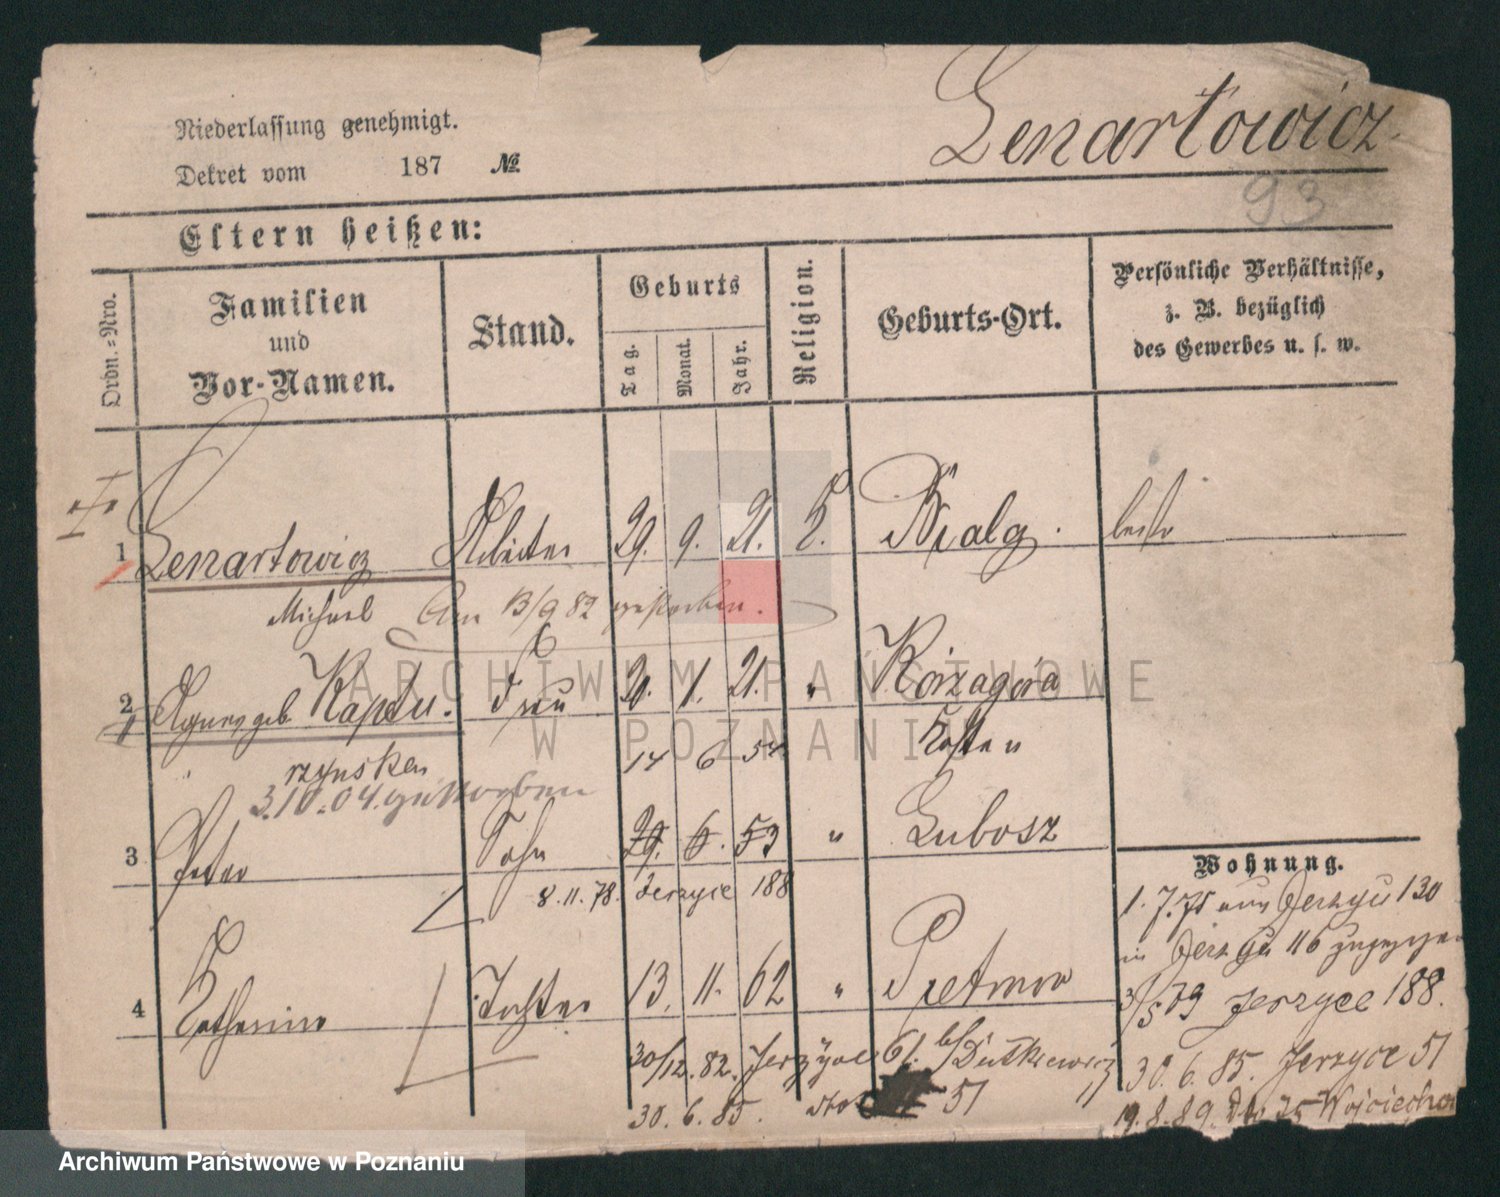 Lenartowicz.
93
Niederlassung genehmigt.
Dekret vom 187 №
Eltern heißen:
Ordn.=Nro.
Familien
und
Vor-Namen.
Stand.
Geburts
Tag. Monat. Jahr.
Religion.
Geburts-Ort.
Persönliche Verhältnisse,
z. B. bezüglich
des Gewerbes u. s. w.
1 Lenartowicz Arbeiter 29. 9. 21. Bialg.
Michael Am 13/9 82 gestorben.
2 Agnes geb. Kaptu. Frau 21. " Kórzagóra
14 6 54 Kosten
rzynsken
3.10.04. gestorben
3 Peter Sohn 29. 6. 53 " Lubosz
8.11.78. Jerzyce 188
4 Catharina Tochter 13. 11. 62 "
30/12.82. Jerzyce 61. bei Dutkiewicz
30.6.85. dto 51
Wohnung.
1.7.75 aus Jerzyce 130
in Jerzyce 116 zugezogen
3/5 79 Jerzyce 188.
30.6.85. Jerzyce 51
19.8.89. 25 Wojciechow
ARCHIWUM PAŃSTWOWE
W POZNANIU
Archiwum Państwowe w Poznaniu